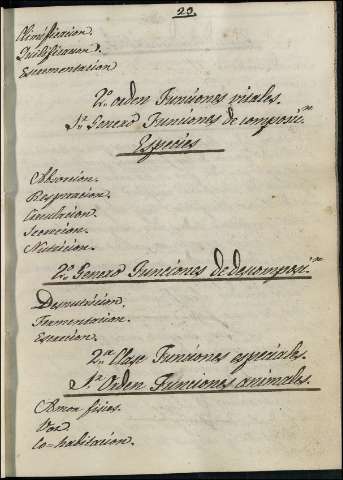 23.
Quilificacion.
Escrementacion
2º orden Funciones vitales.
1er Genero Funciones de composicion
Especies
Absorcion.
Respiracion.
Circulacion.
Secrecion.
Nutricion.
2º Genero Funciones de descomposicion
Desnutricion.
Fermentacion.
Escrecion.
2ª Clase Funciones especiales.
1er Orden Funciones animales.
Amor fisico.
Voz.
Co=habitacion.